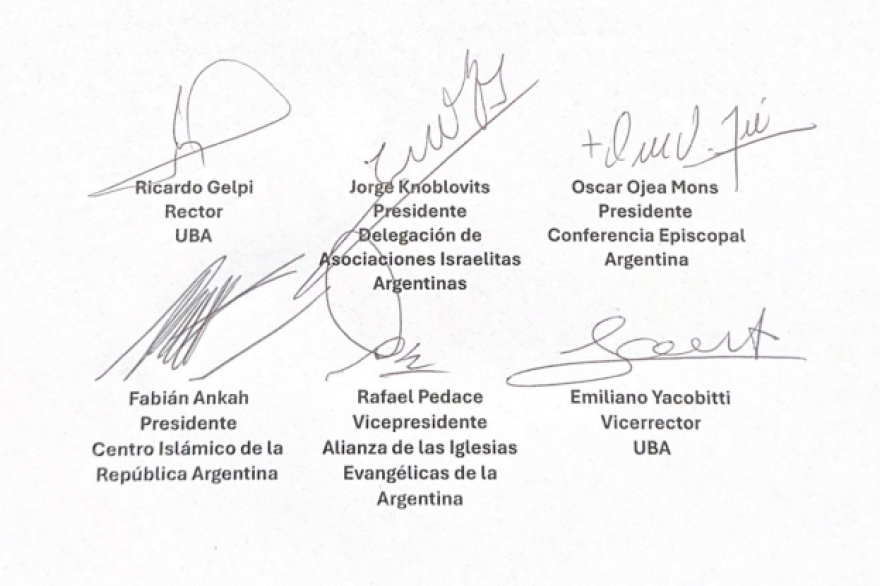 Ricardo Gelpi
Rector
UBA
Jorge Knoblovits
Presidente
Delegación de
Asociaciones Israelitas
Argentinas
Oscar Ojea Mons
Presidente
Conferencia Episcopal
Argentina
Fabián Ankah
Presidente
Centro Islámico de la
República Argentina
Rafael Pedace
Vicepresidente
Alianza de las Iglesias
Evangélicas de la
Argentina
Emiliano Yacobitti
Vicerrector
UBA